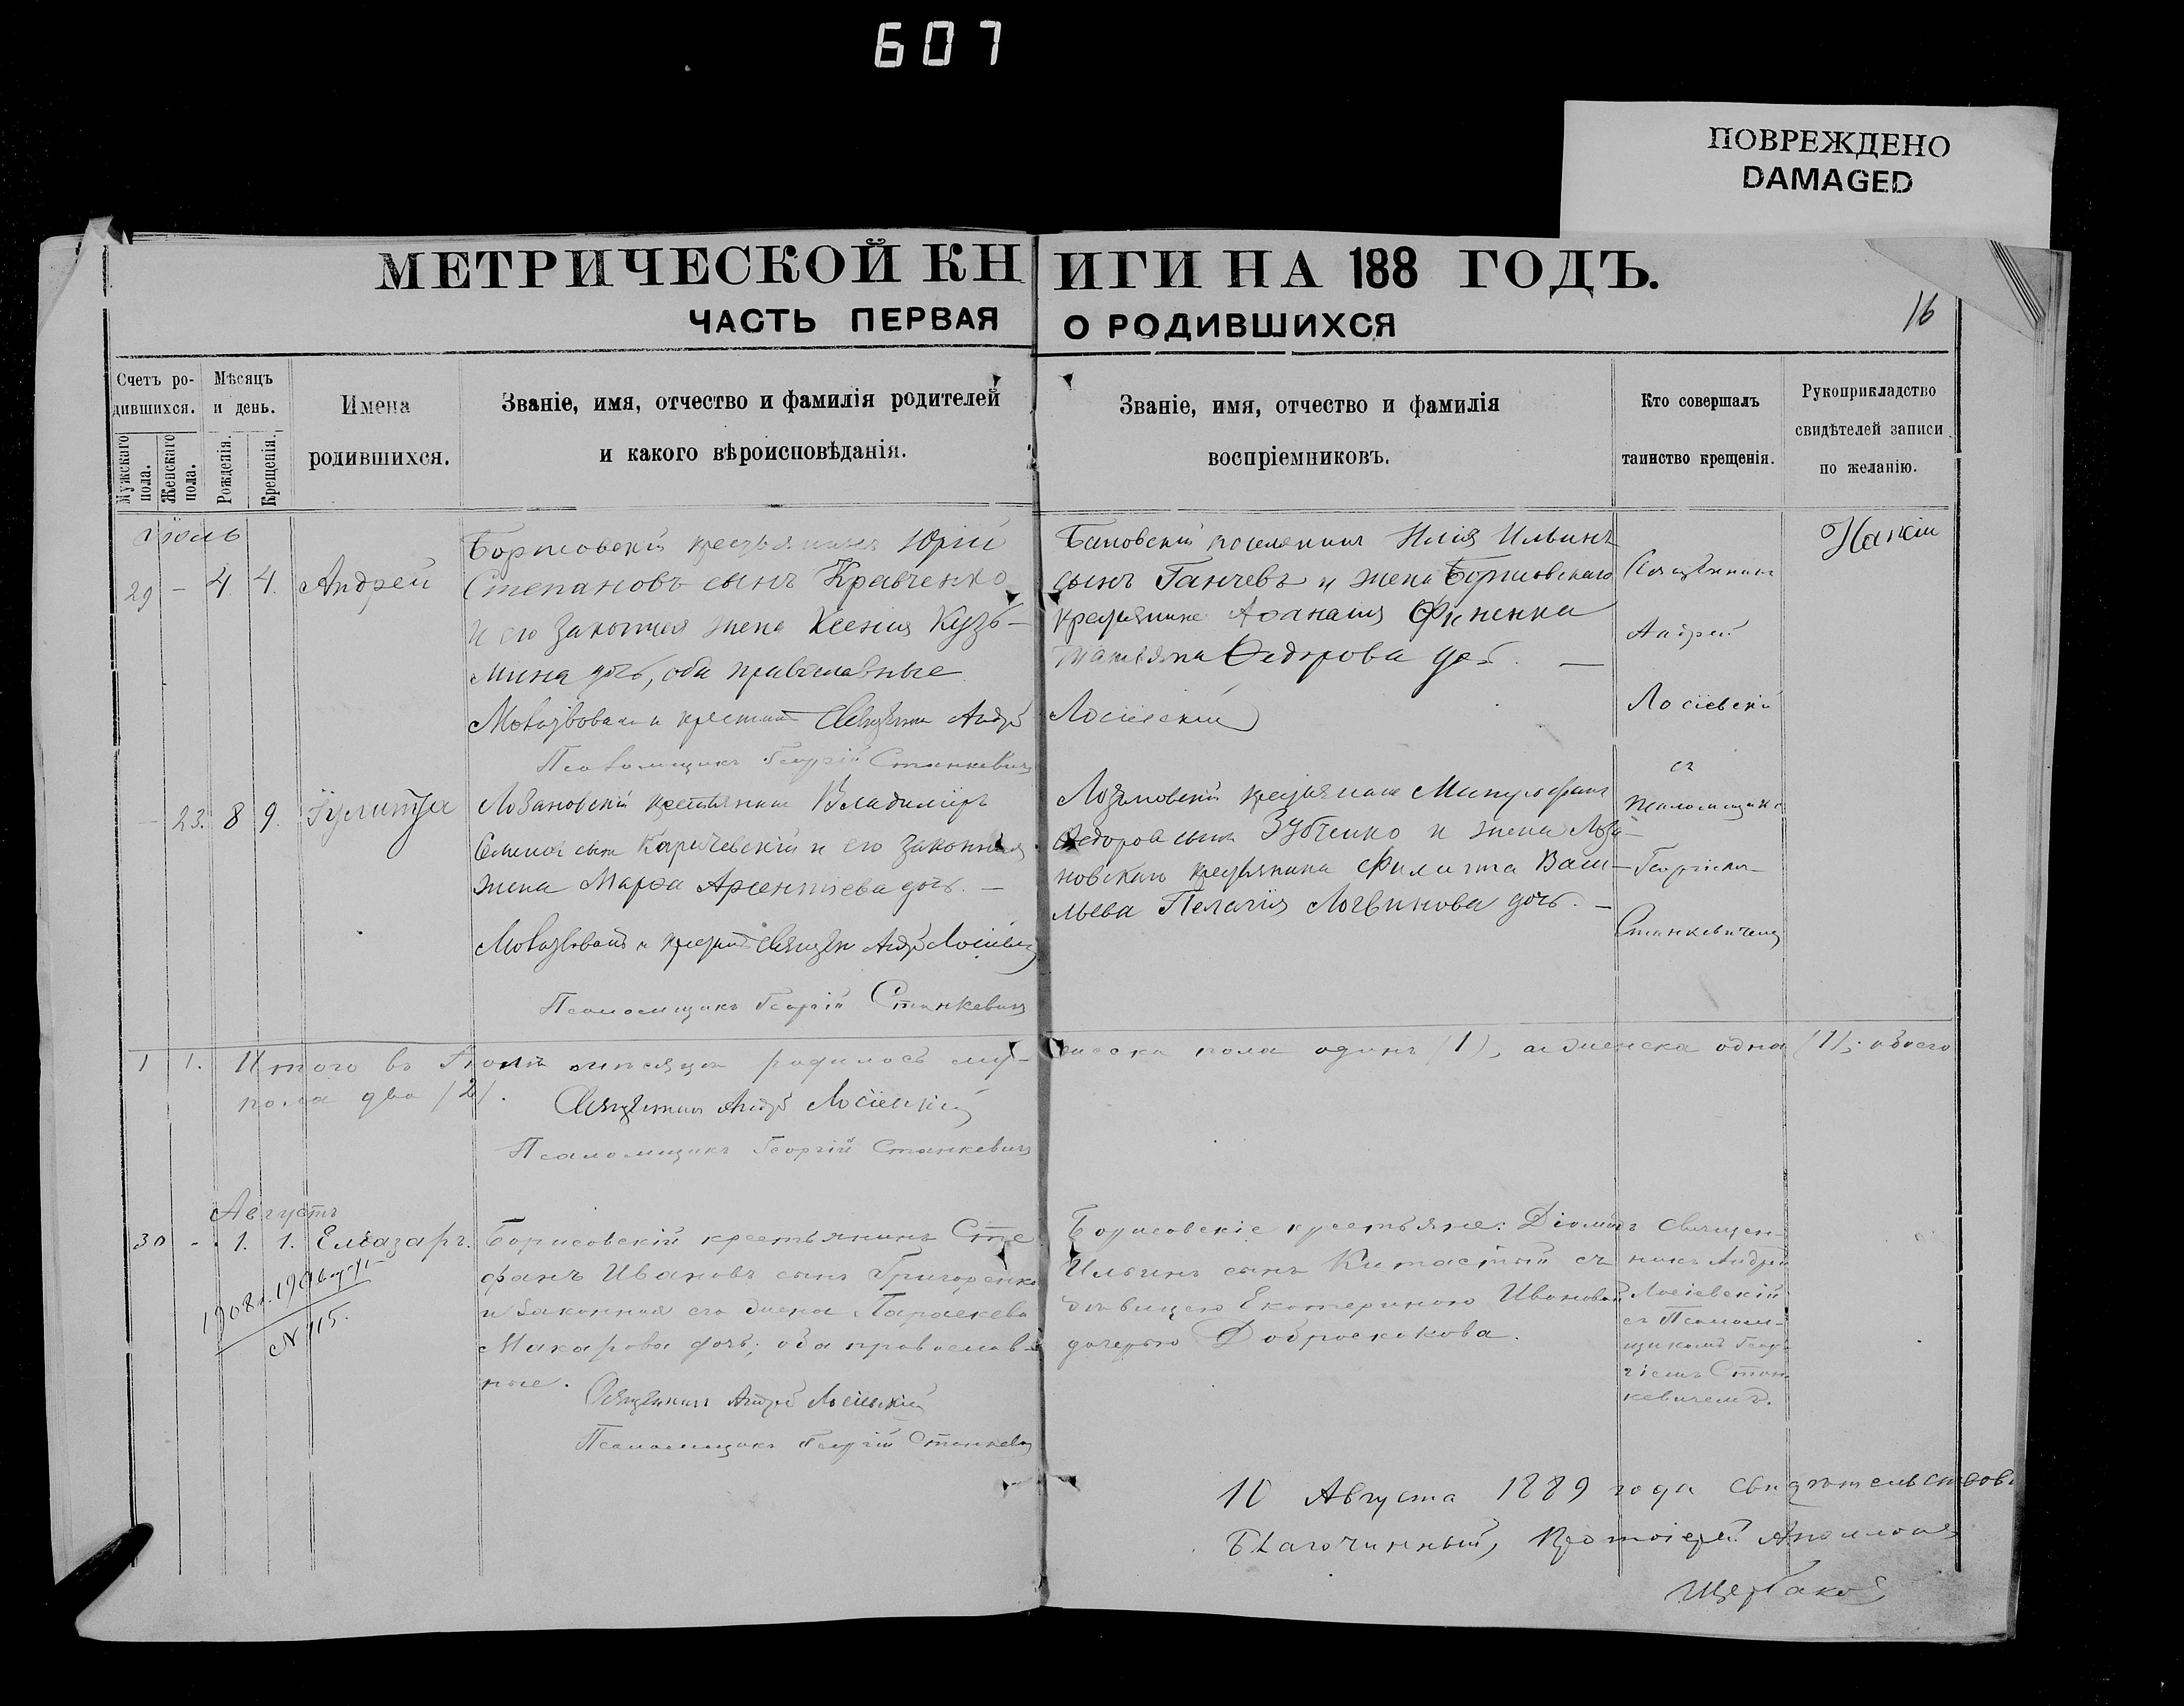 607
ПОВРЕЖДЕНО
DAMAGED
МЕТРИЧЕСКОЙ КНИГИ НА 188 ГОДЪ.
ЧАСТЬ ПЕРВАЯ О РОДИВШИХСЯ
16
Счетъ ро-
дившихся.
Мужскаго
пола.
Женскаго
пола.
Мѣсяцъ
и день.
Рожденія.
Крещенія.
Имена
родившихся.
Званіе, имя, отчество и фамилія родителей
и какого вѣроисповѣданія.
Званіе, имя, отчество и фамилія
воспріемниковъ.
Кто совершалъ
таинство крещенія.
Рукоприкладство
свидѣтелей записи
по желанію.
Іюль
29 - 4. 4. Андрей
Борисовскій крестьянинъ Юрій
Степановъ сынъ Кравченко
и его законная жена Ксенія Кузь-
мина дочь, оба православные
Молитвовалъ и крестилъ Священникъ Андрей Лосіевскій
Псаломщикъ Георгій Станкевичъ
поселянинъ Илія Ильинъ
сынъ Ганчевъ и жена Борисовскаго
крестьянина Аѳанасія
Татьяна Ѳедорова доч. —
Священникъ
Андрей
Лосіевскій
съ
псаломщикомъ
Георгіемъ
Станкевичемъ
- 23. 8 9. Іулитта
Лозановскій крестьянинъ Владиміръ
сынъ Каричевскій и его законная
жена Марѳа Арсентіева дочь. —
Молитвовалъ и крестилъ Священ. Андрей Лосіевскій
Псаломщикъ Георгій Станкевичъ
Лозановскій крестьянинъ
Ѳедоровъ сынъ Зубченко и жена Лоза-
новскаго крестьянина Филиппа Васи-
льева Пелагія Логвинова дочь. —
1 1. Итого въ Іюлѣ мѣсяцѣ родилось муж-
еска пола одинъ (1), а женска одна (1); обоего
пола два (2).
Священникъ Андрей Лосіевскій
Псаломщикъ Георгій Станкевичъ
Августъ
30 - 1. 1. Елеазаръ.
1908 г. 19 Август
N 115.
Борисовскій крестьянинъ Сте
фанъ Ивановъ сынъ Григоренко
и законная его жена Параскева
Макарова дочь; оба православ-
ные.
Священникъ Андрей Лосіевскій
Псаломщикъ Георгій Станкевичъ
Борисовскіе крестьяне: Діомидъ
Ильинъ сынъ Китастый съ
дѣвицею Екатериною Ивановой
дочерью Доброскокова.
Священ-
никъ Андрей
Лосіевскій
съ Псалом-
щикомъ Геор-
гіемъ Стан
кевичемъ.
10 Августа 1889 года свидѣтельствовалъ
Благочинный, Протоіерей Аполлонъ
Щербаковъ